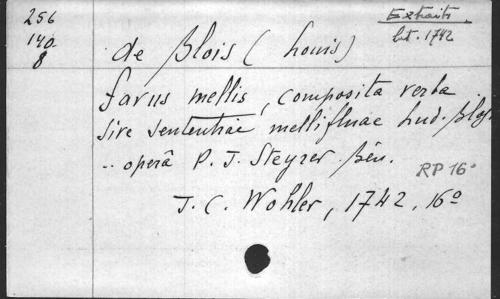 256
140
8
Extraits
lat. 1742
de Blois (Louis)
favus mellis, composita verba
sive sententiae mellifluae Lud. Blos
.. operâ P. J. Steyrer Bén.
RP 16°
J. C. Wohler, 1742, 16°